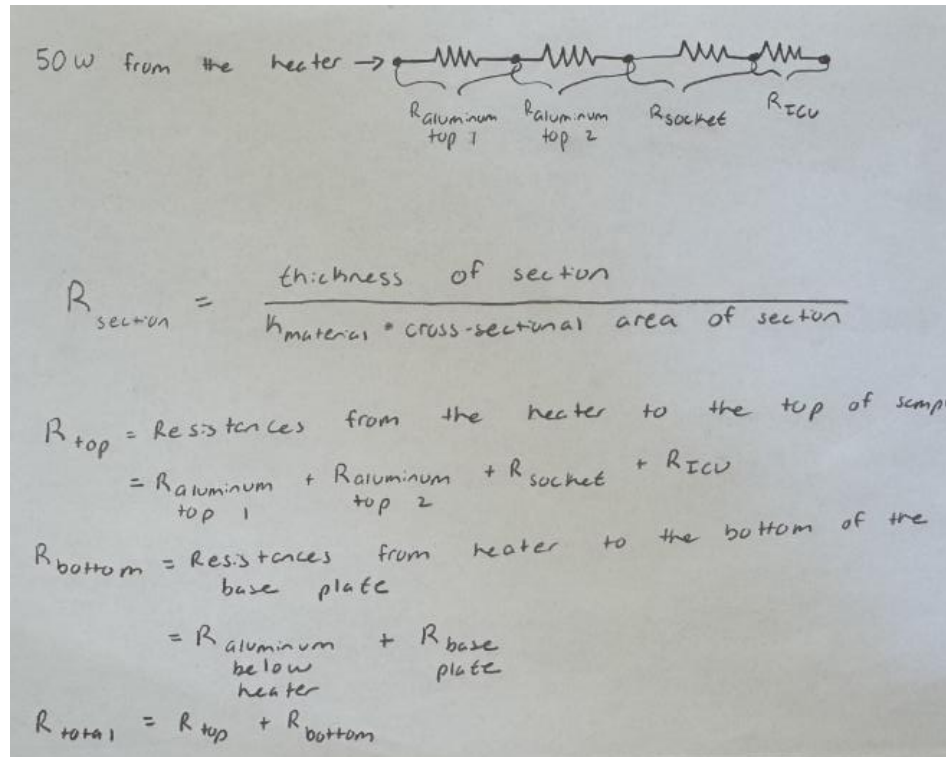 50 W from the heater →
R aluminum top 1 R aluminum top 2 R socket R ICU
R section = thickness of section
k material • cross-sectional area of section
R top = Resistances from the heater to the top of samp
= R aluminum top 1 + R aluminum top 2 + R socket + R ICU
R bottom = Resistances from heater to the bottom of the
base plate
= R aluminum below heater + R base plate
R total = R top + R bottom